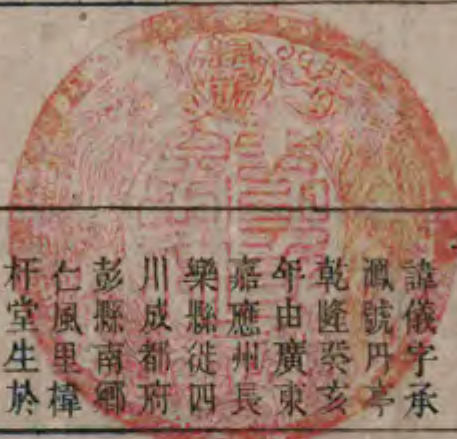 諱儀字承
鳳號丹亭
乾隆癸亥
年由廣東
嘉應州長
樂縣徙四
川成都府
彭縣南鄉
仁風里樟
杆堂生於